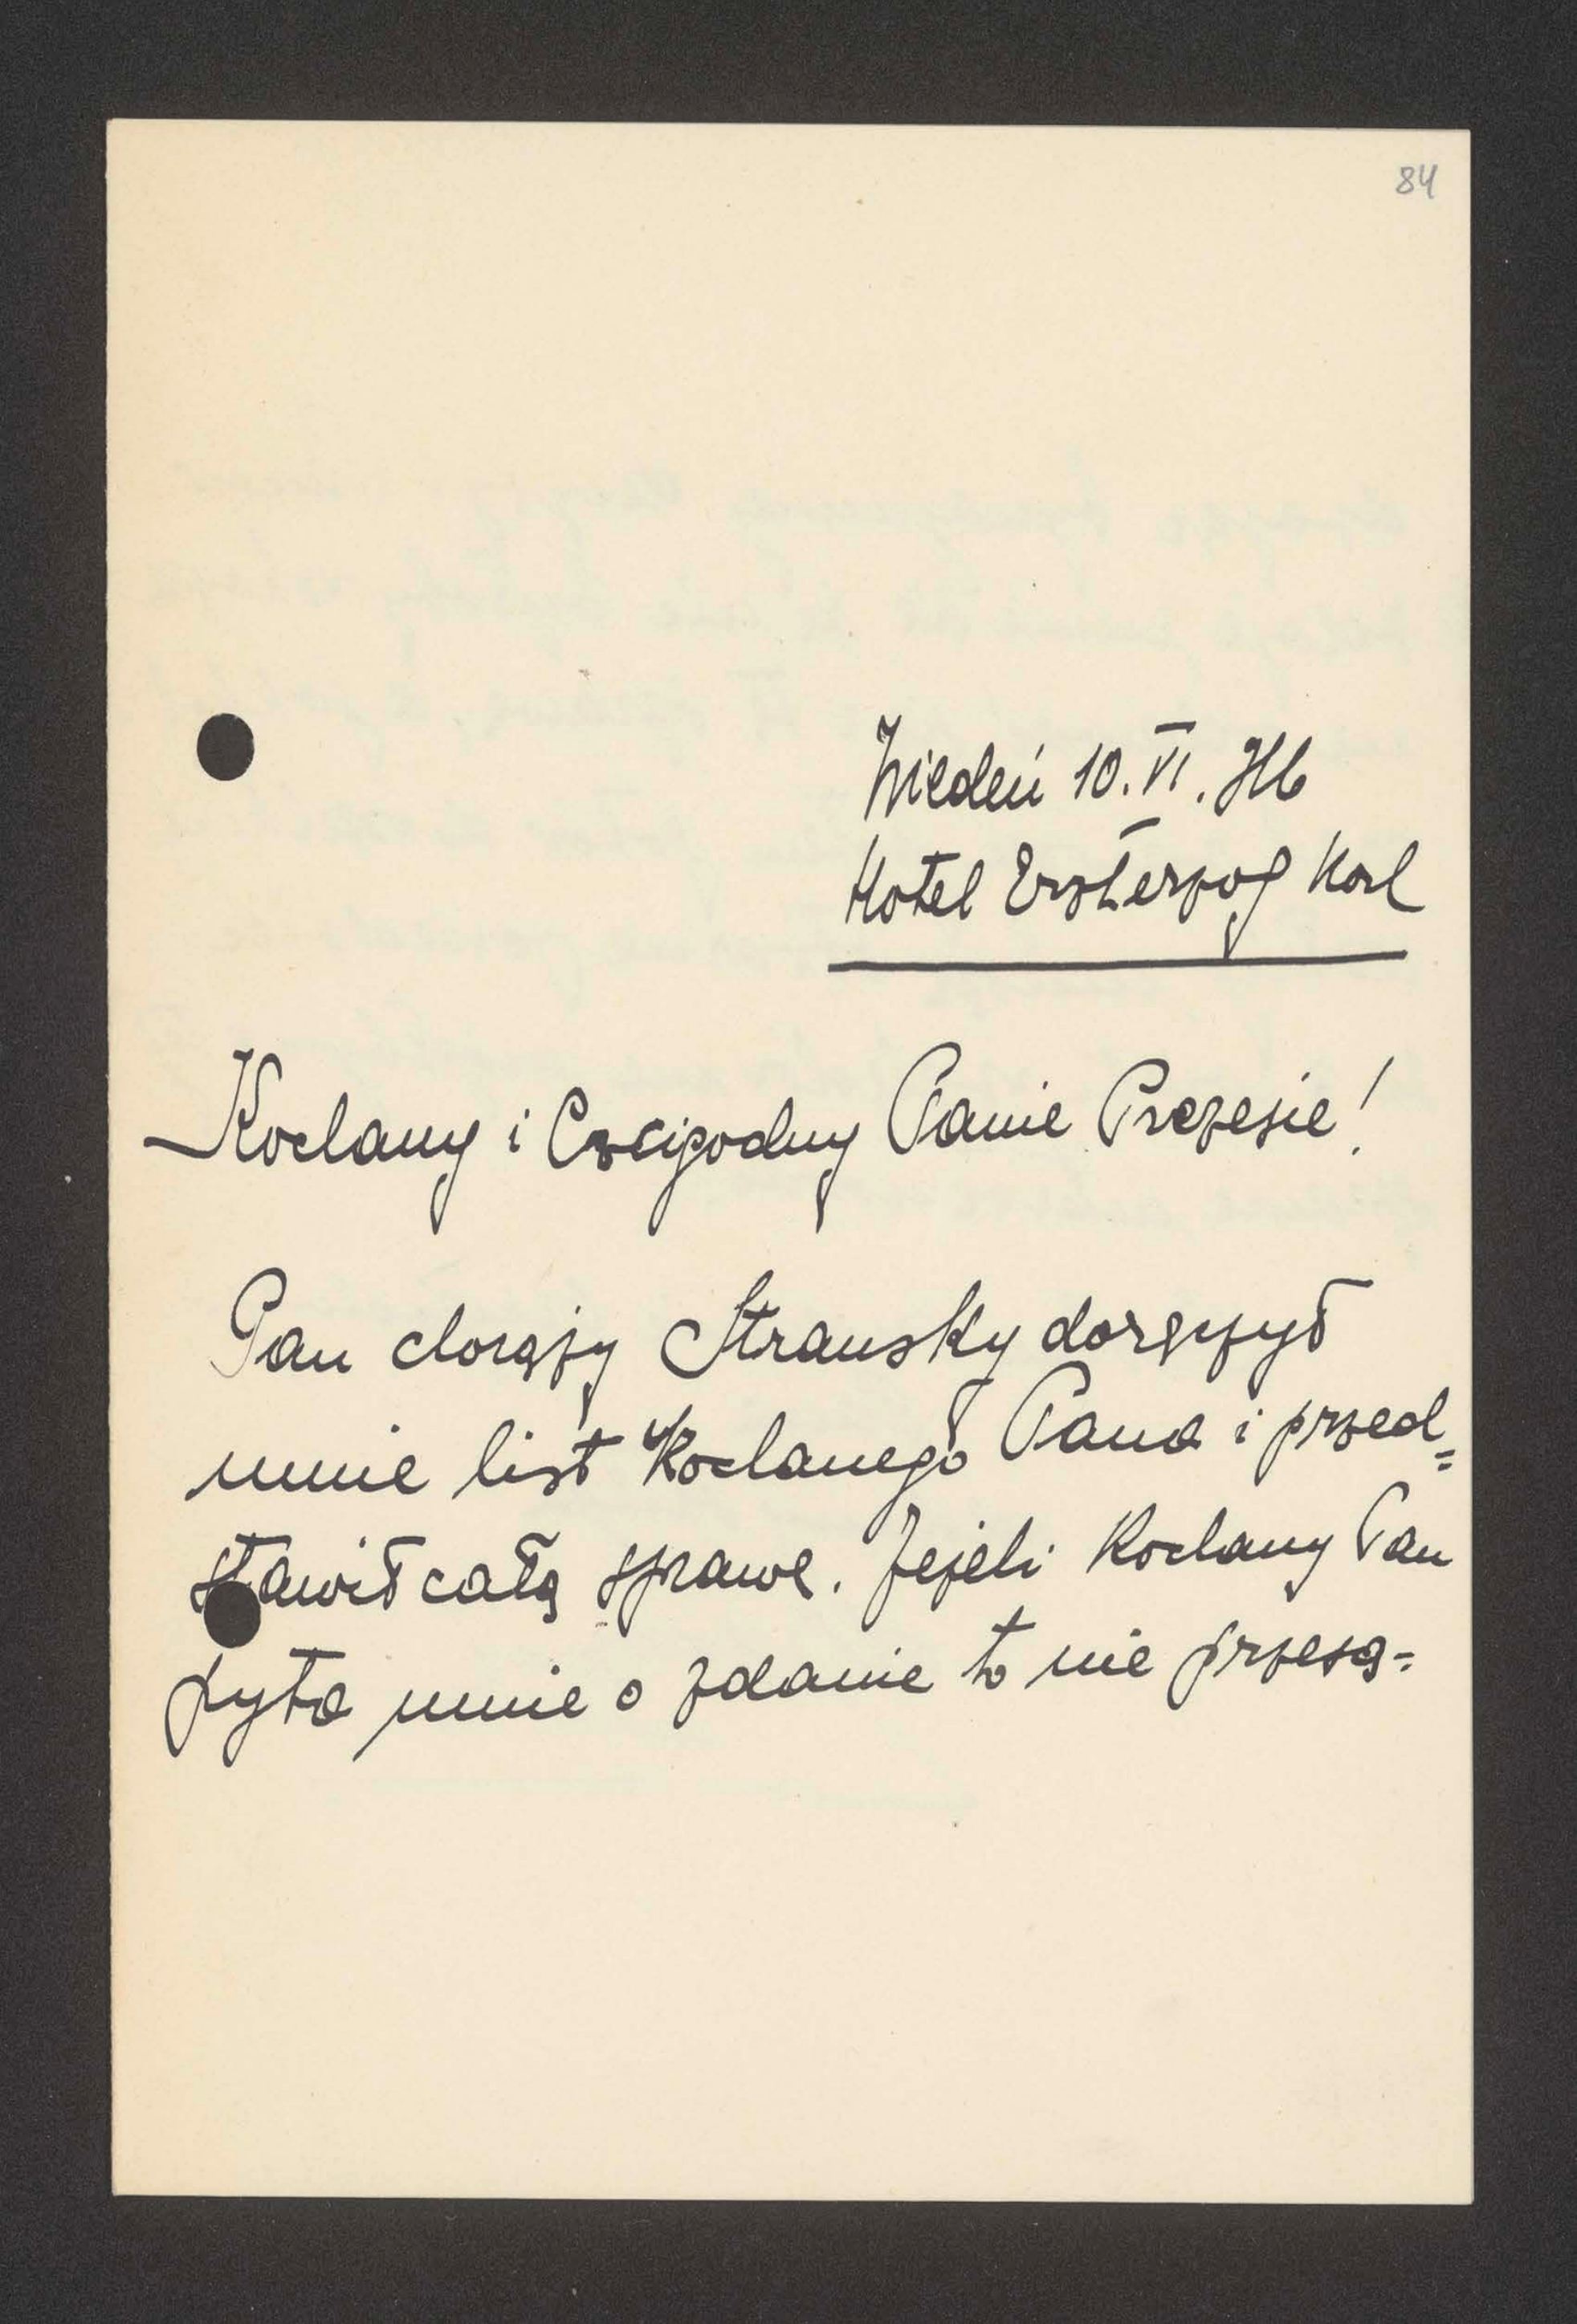 84
Wiedeń 10. VI. 916
Hotel Erzherzog Karl
Kochany i Czcigodny Panie Prezesie!
Pan chorąży Stransky doręczył
mnie list Kochanego Pana i przed=
stawił całą sprawę. Jeżeli Kochany Pan
pyta mnie o zdanie to nie przesą=